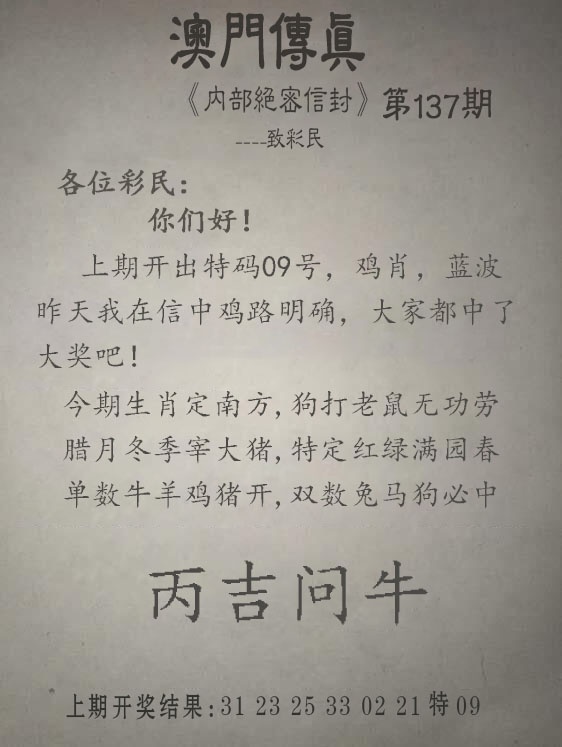 澳門傳眞
《内部絕密信封》第137期
----致彩民
各位彩民：
你们好！
上期开出特码09号，鸡肖，蓝波
昨天我在信中鸡路明确，大家都中了
大奖吧！
今期生肖定南方,狗打老鼠无功劳
腊月冬季宰大猪,特定红绿满园春
单数牛羊鸡猪开,双数兔马狗必中
丙吉问牛
上期开奖结果:31 23 25 33 02 21特09